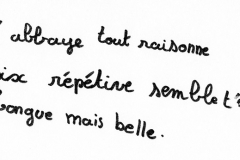 l'abbaye tout raisonne
oix répétive semblet?
longue mais belle.